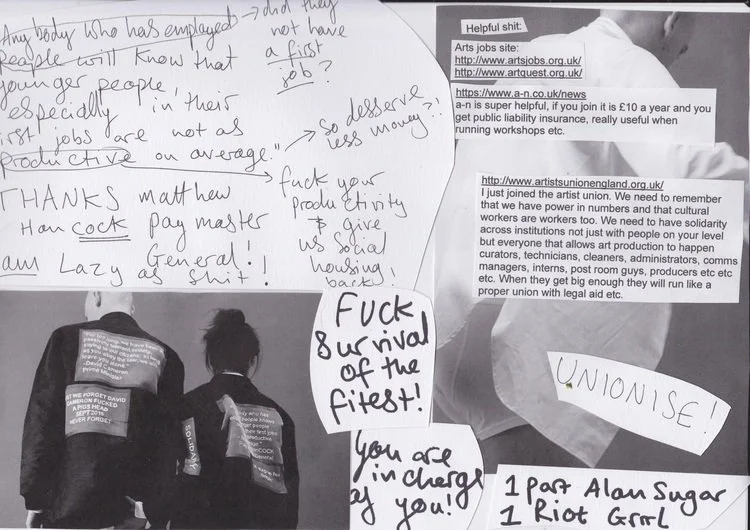 Anybody who has employed
people will know that
younger people,
especially in their
first jobs are not as
productive on average."
THANKS matthew
Han cock paymaster
General!
am Lazy as shit!
did they
not have
a first
job?
So desserve
less money?!
fuck your
Productivity
& give
us Social
housing
back!
Helpful shit:
Arts jobs site:
http://www.artsjobs.org.uk/
http://www.artquest.org.uk/
https://www.a-n.co.uk/news
a-n is super helpful, if you join it is £10 a year and you
get public liability insurance, really useful when
running workshops etc.
http://www.artistsunionengland.org.uk/
I just joined the artist union. We need to remember
that we have power in numbers and that cultural
workers are workers too. We need to have solidarity
across institutions not just with people on your level
but everyone that allows art production to happen
curators, technicians, cleaners, administrators, comms
managers, interns, post room guys, producers etc etc
etc. When they get big enough they will run like a
proper union with legal aid etc.
-David Cameron
Prime Minister
WE FORGET DAVID
CAMERON FUCKED
A PIGS HEAD
SEPT 2015
NEVER FORGET
FUCK
Survival
of the
fitest!
you are
in charge
of you!
UNIONISE!
1 part Alan Sugar
1 Riot Grrrl